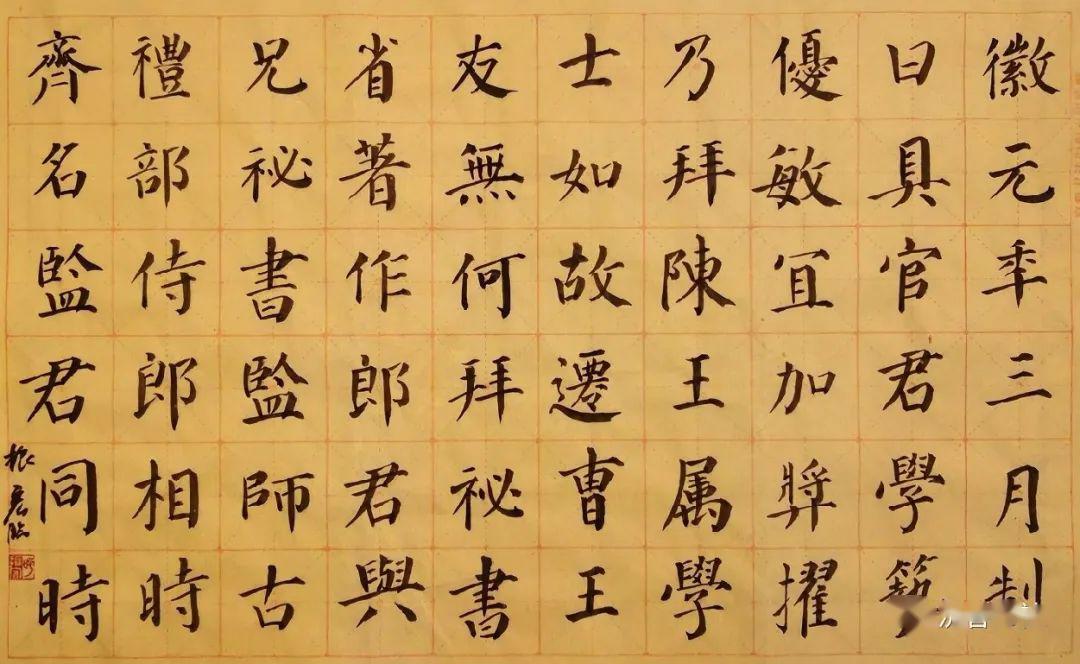 徽元年三月制
曰具官君學
優敏冝加奬擢
乃拜陳王属學
士如故遷曹王
友無何拜祕書
省著作郎君與
兄祕書監師古
禮部侍郎相時
齊名監君同時